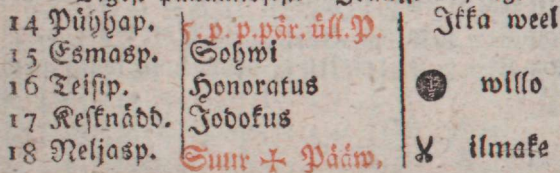 14 Pühhap. 5. p. p. pär. üll. P. Jkka weel
15 Esmasp. Sohwi
16 Teisip. Honoratus willo
17 Kesknädd. Jodokus
18 Neljasp. Suur ☩ Pääw. ilmake